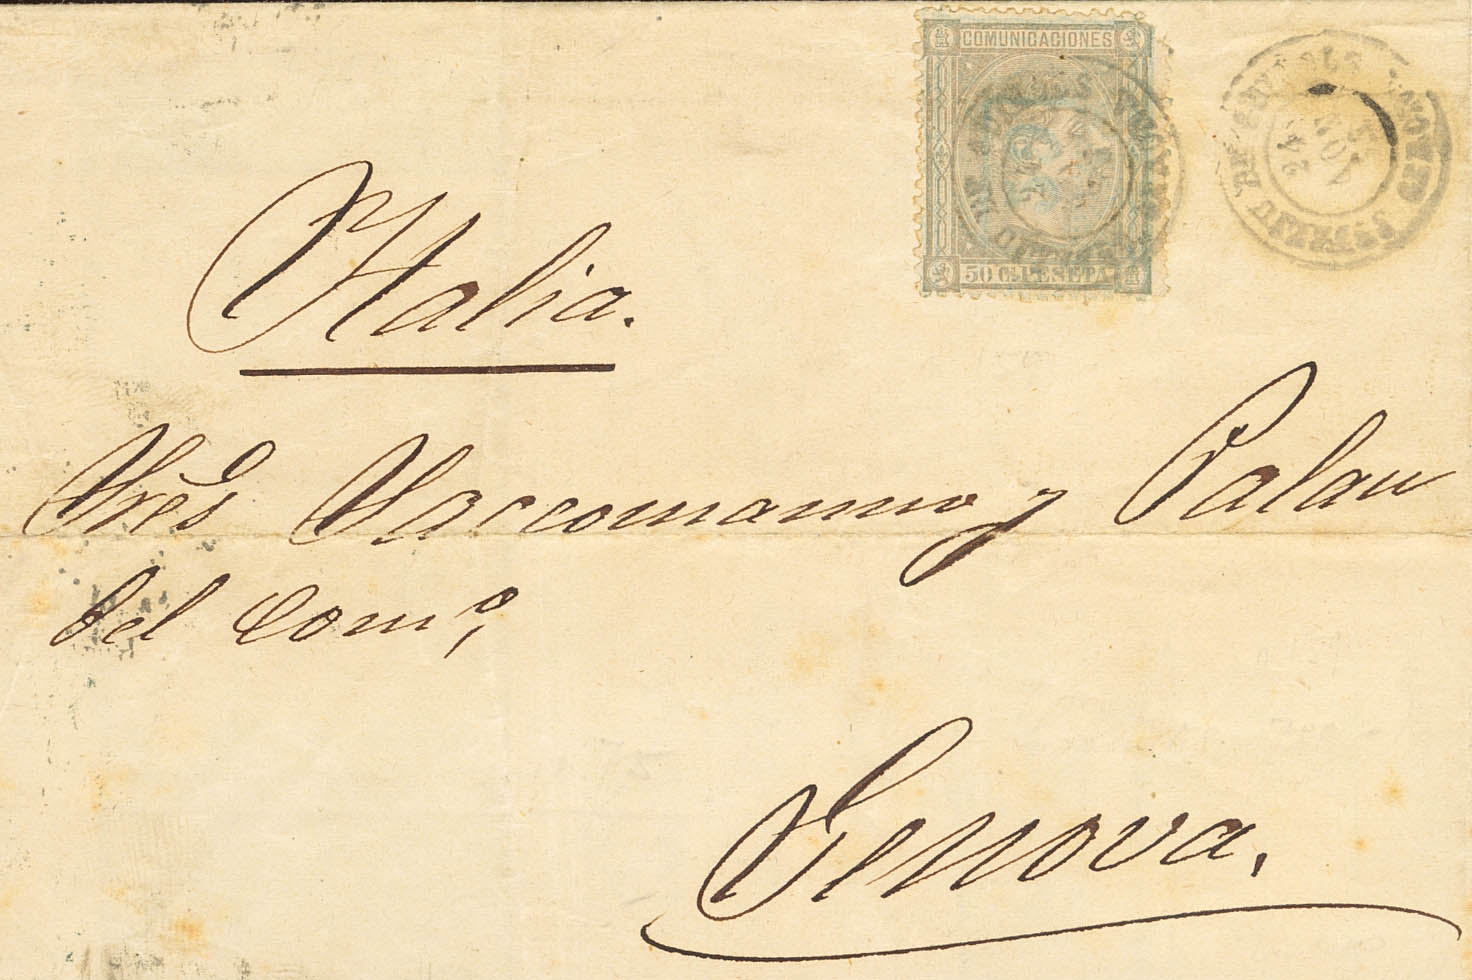 COMUNICACIONES
50 Cs PESETA
Italia.
Sres Vaccomanno y Palau
del Como,
Genova.